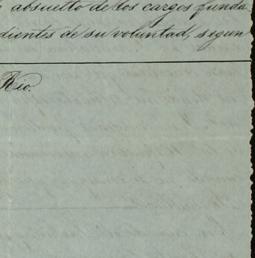 absuelto de los cargos funda
dientes de su voluntad, segun
Rio.